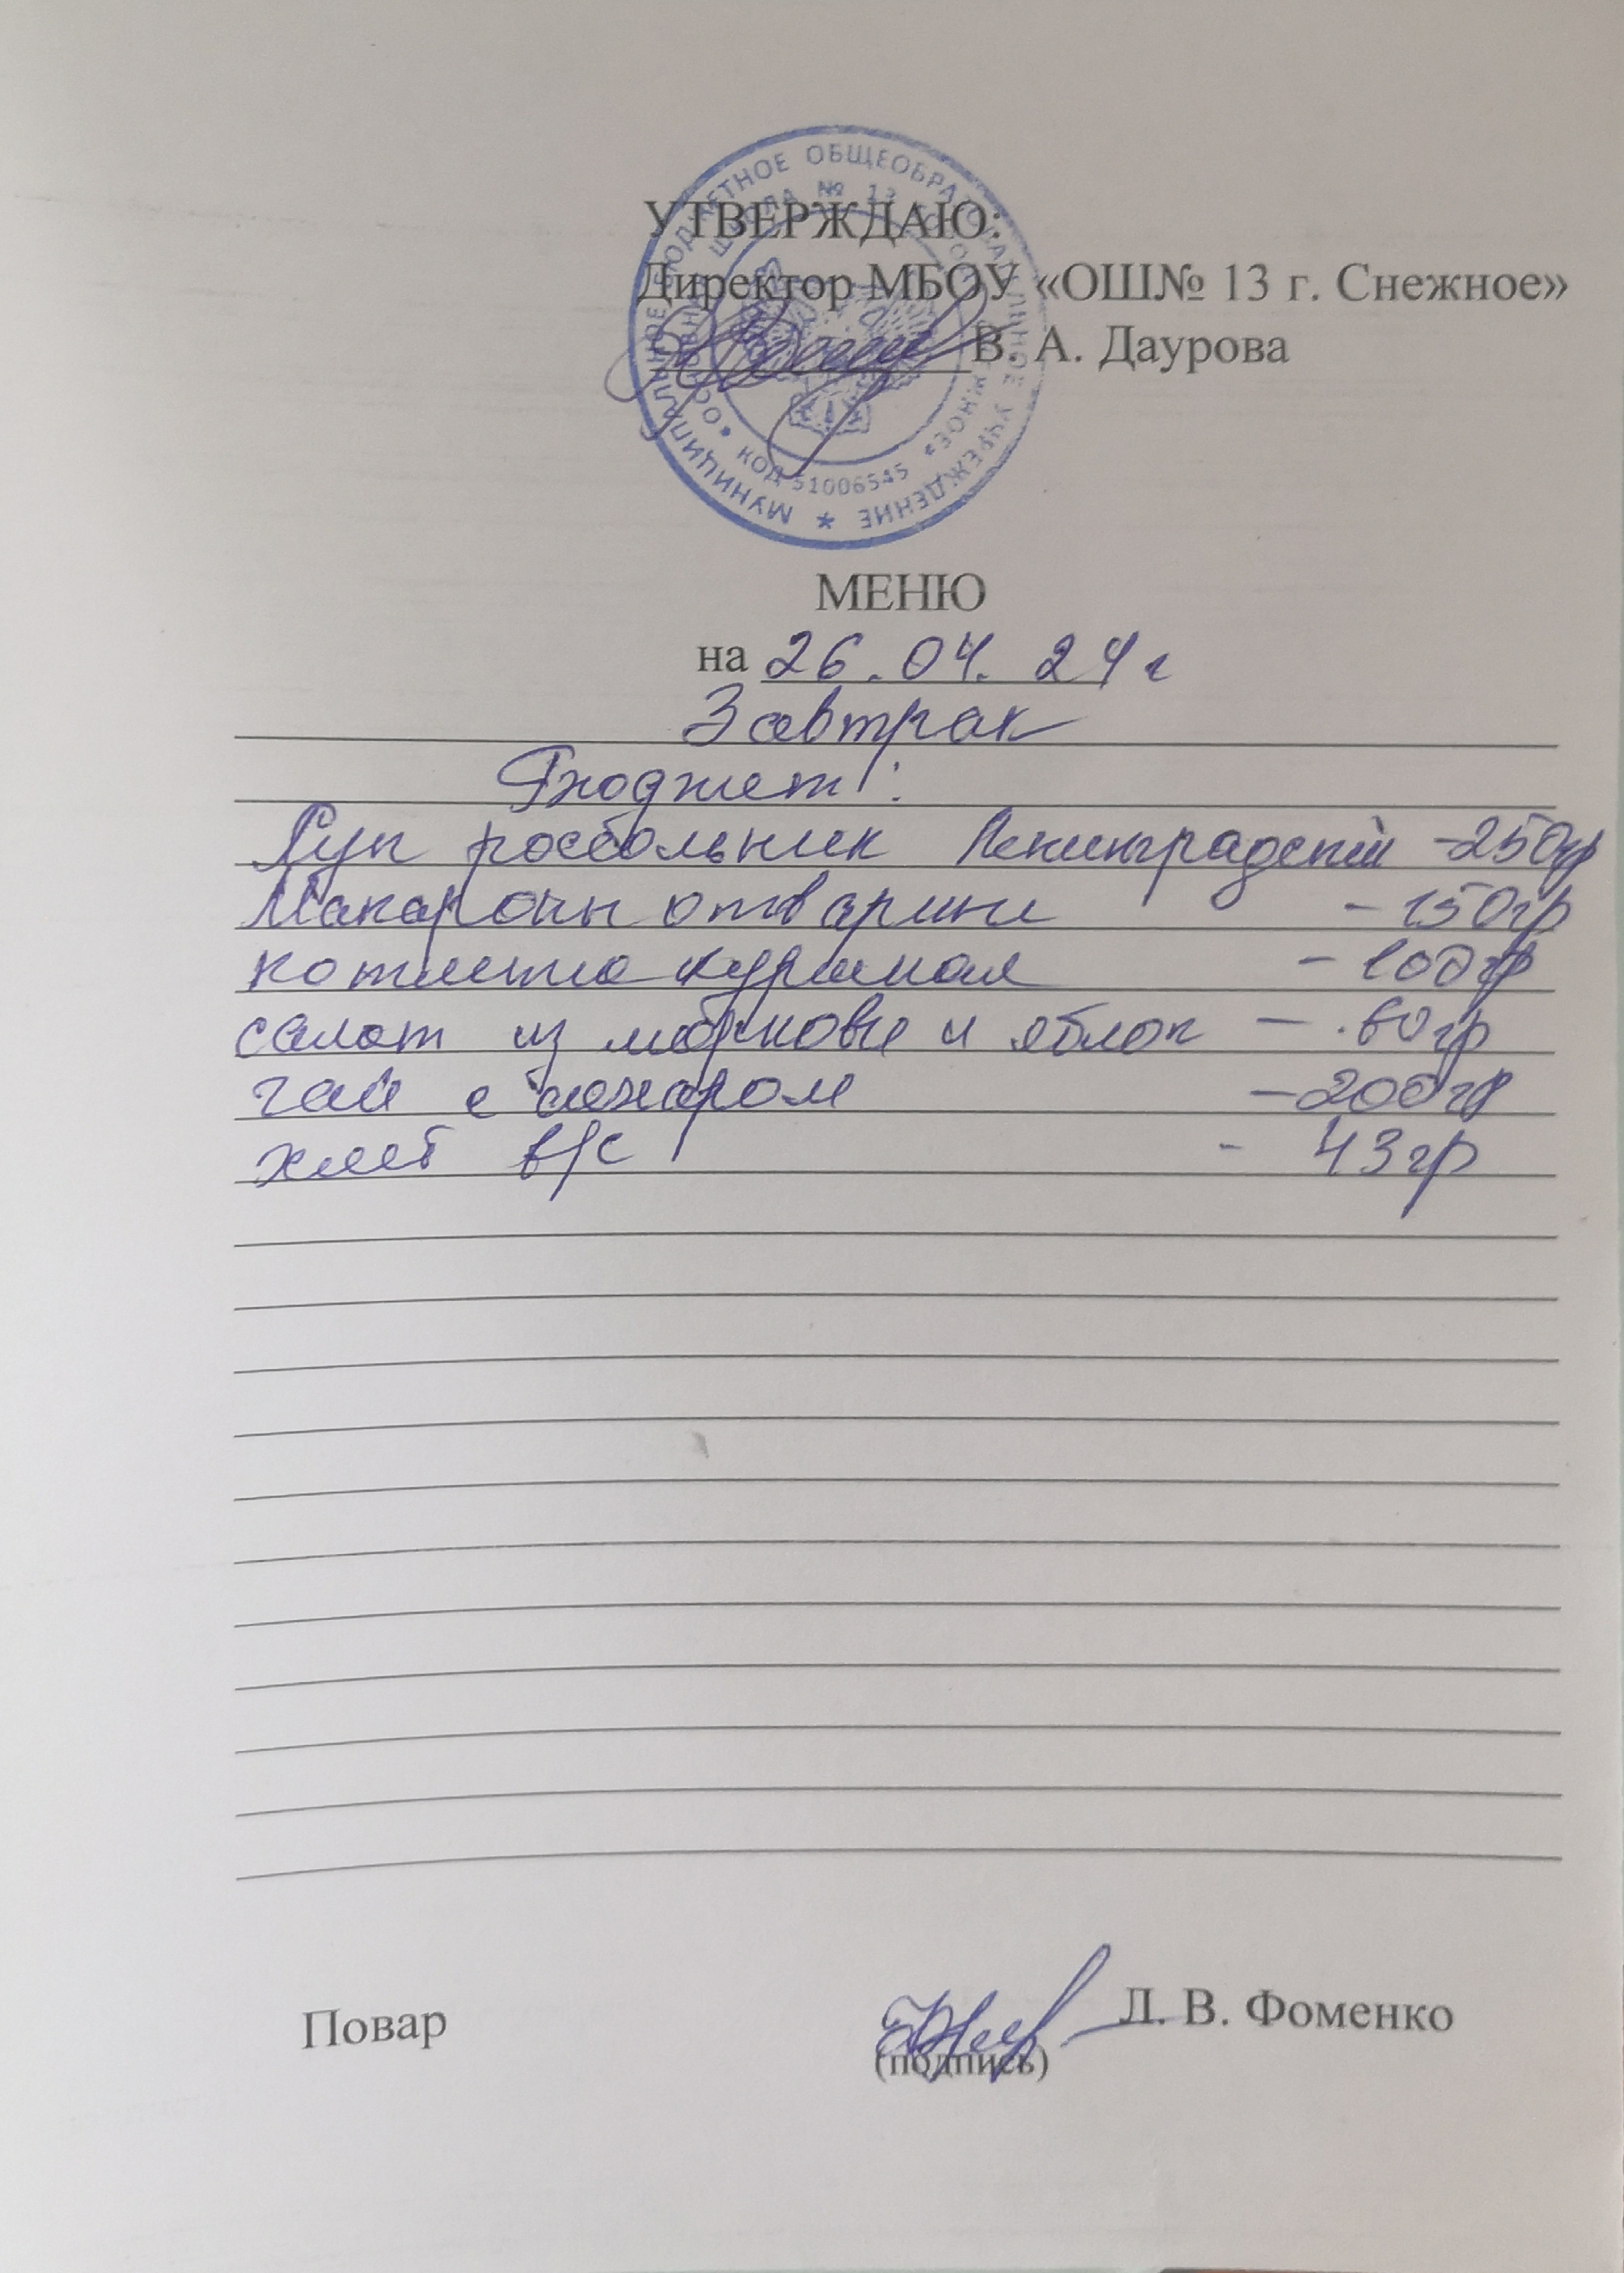 МУНИЦИПАЛЬНОЕ БЮДЖЕТНОЕ ОБЩЕОБРАЗОВАТЕЛЬНОЕ УЧРЕЖДЕНИЕ
КОД 51006545
УТВЕРЖДАЮ:
Директор МБОУ «ОШ№ 13 г. Снежное»
В. А. Даурова
МЕНЮ
на 26.04.24г
Завтрак
Бюджет:
Суп россольник Ленинградский -250гр
Макароны отварные - 150гр
котлета куриная - 100гр
салат из моркови и яблок - 60гр
чай с сахаром - 200гр
хлеб в/с - 43гр
Повар Л. В. Фоменко
(подпись)